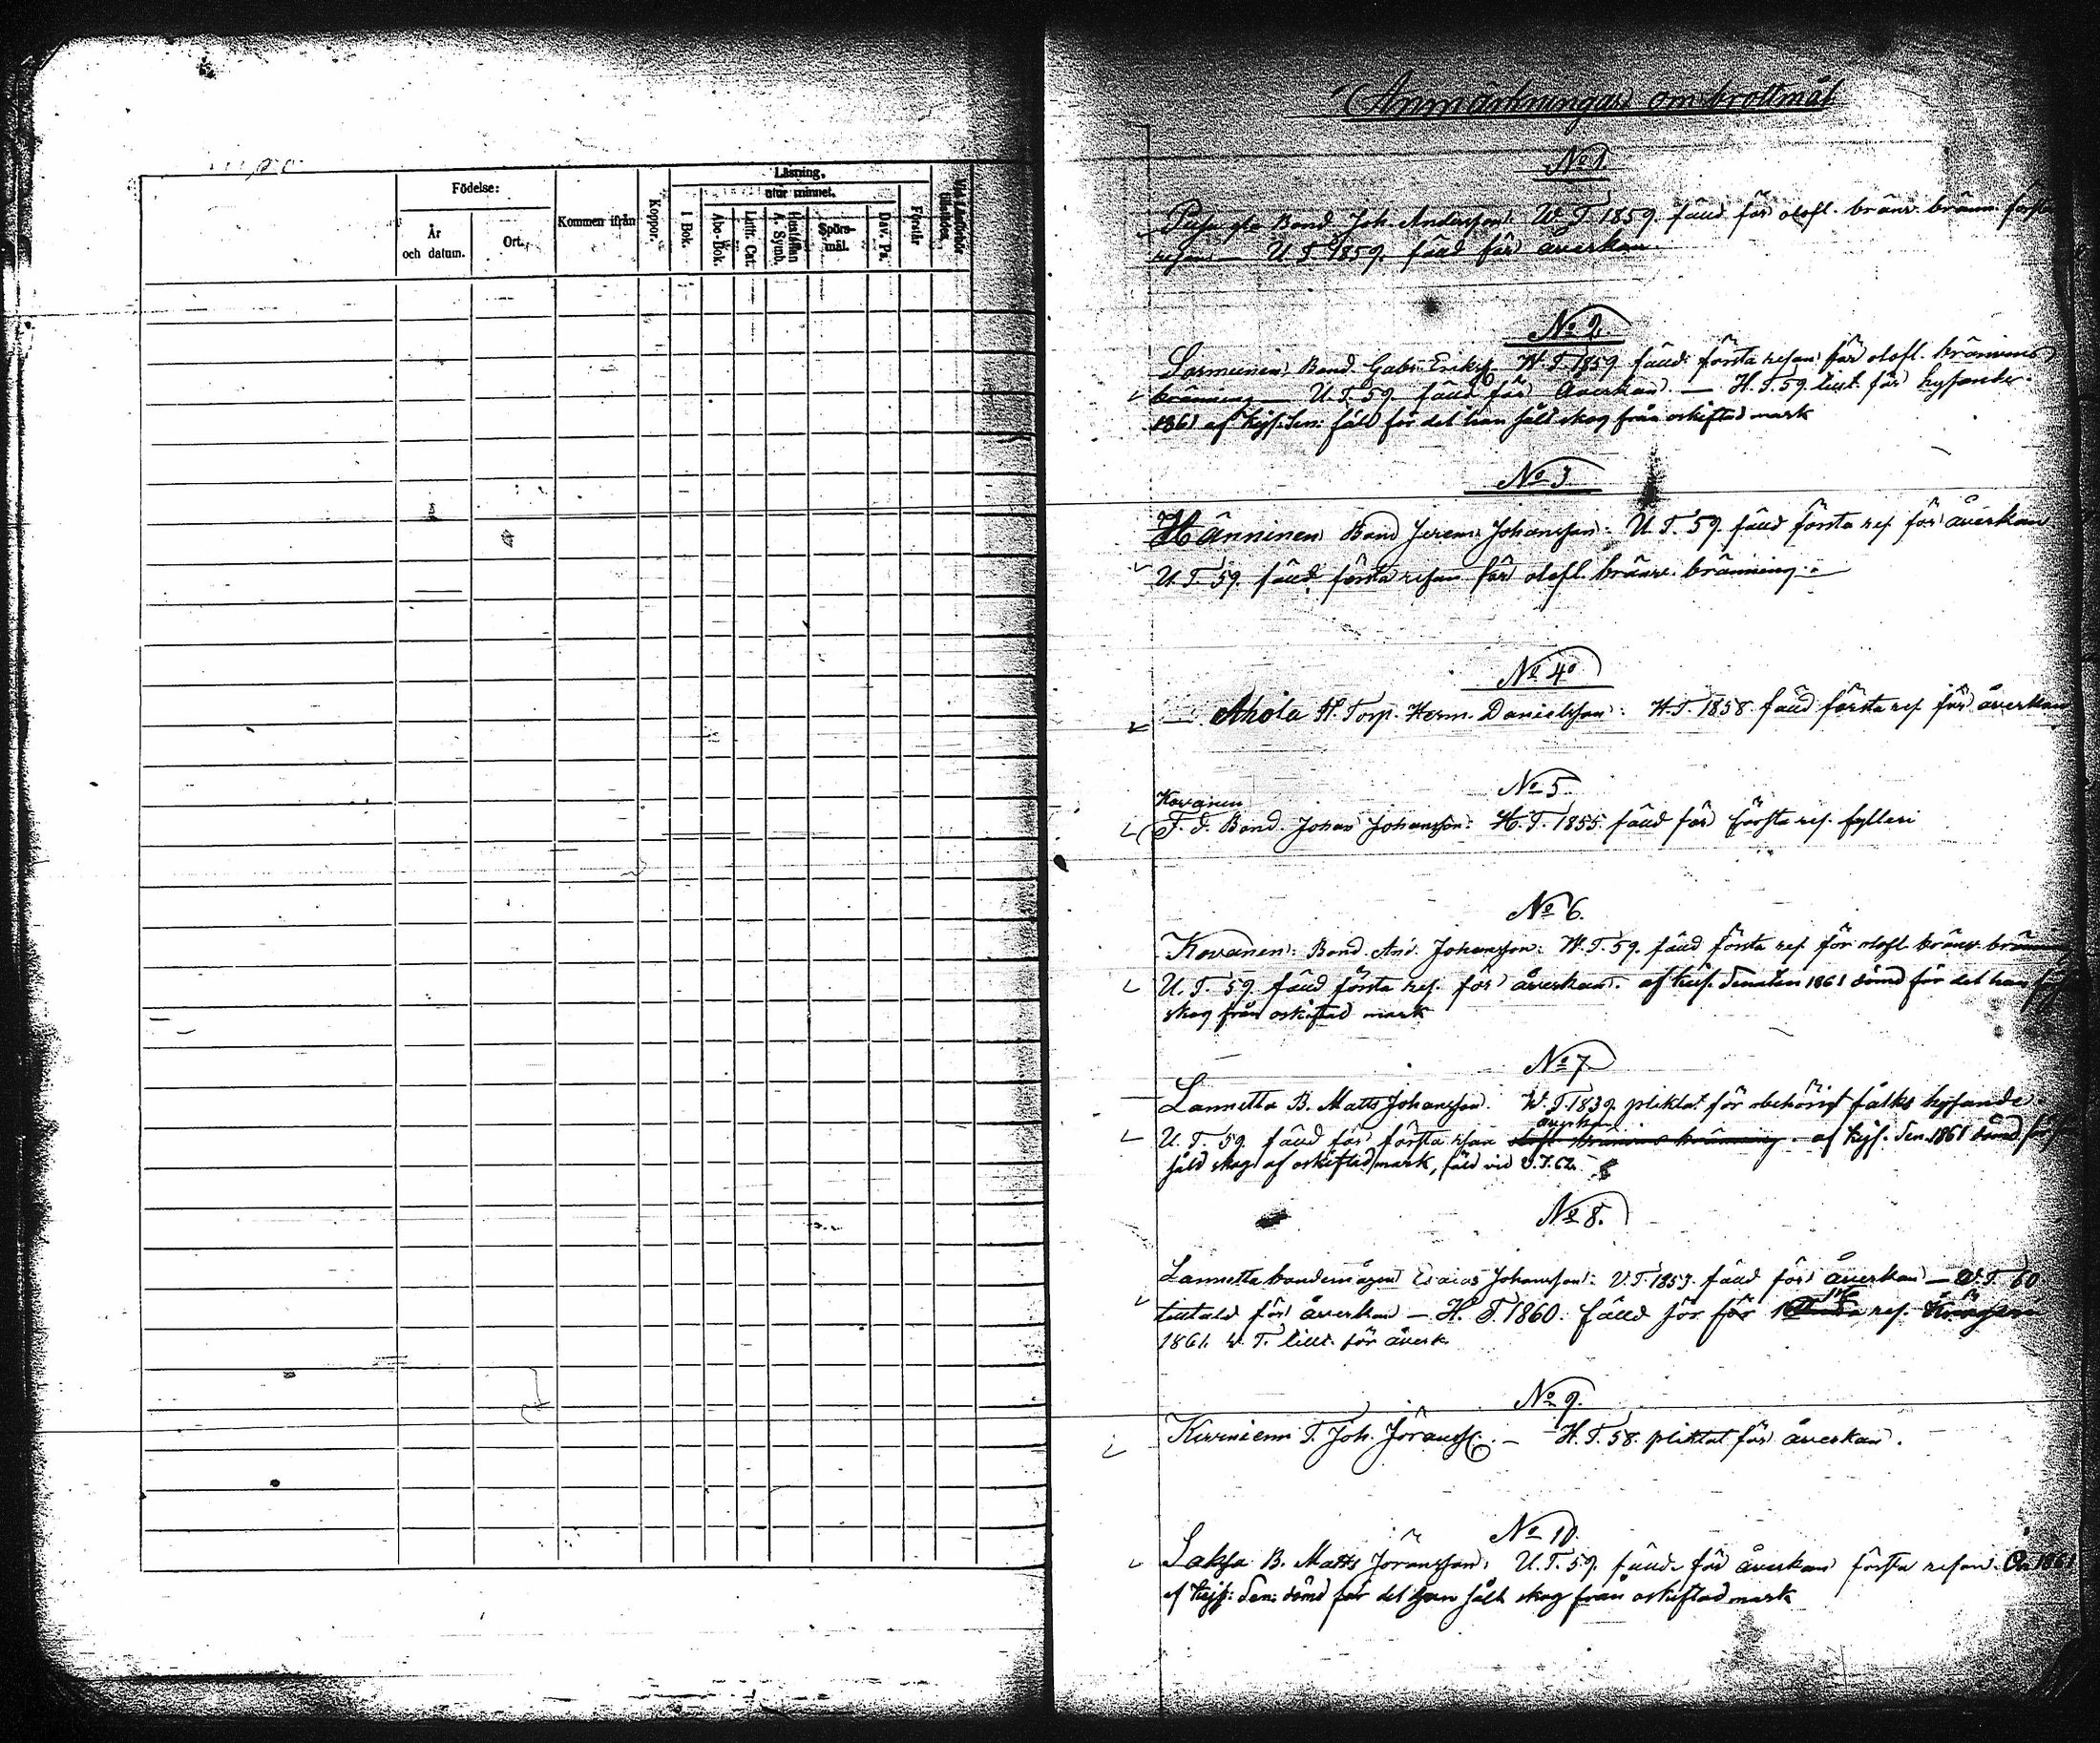 Födelse:
År och datum.
Ort.
Kommen ifrån
Koppor.
Läsning,
utur minnet.
I Bok.
Abc-Bok.
Luth. Cat.
Hustaflan A. Symb.
Spörs-mål.
Dav. Ps.
Förstår
Anmärkningar om brottmål
No 1
Bond. Joh. Andersson: W. T. 1859 fäud för olofl. bränv. bränn första
resan — U. T. 1859 fäud för averkan.
No 2.
Bond. Gabr. Erikss. W. T. 1859 fäud första resan för olofl. bränvens
bränning — U. T. 59 fäud för Averkan — H. T. 59 för
1861 af Kejs. Sen: fäld för det han såld skog från oskiftad mark
No 3
Hänninen Bond Jerem: Johansson: U. T. 59. fäud första res. för åverkan
U. T. 59. fäud första resan för olofl. bränv. bränning.
No 4
Ahola H. Torp. Herm. Danielsson: H. T. 1858 fäud första res för åverkan
No 5.
Kovanen
F. d. Bond. Johan Johansson: H. T. 1855 fäud för första res. fylleri
No 6.
Kovanen: Bond. And. Johansson: W. T. 59. fäud första res för olofl bränv. bränning
U. T. 59 fäud första res. för åverkan. af Kejs. Senaten 1861 dömd för det han
skog från oskiftad mark
No 7
Lannetta B. Matts Johansson. W. T. 1839. pliktat för obehörigt fålks hysande
åverkan
U. T. 59. fäud för första resan olofl bränvins bränning. af Kejs. Sen. 1861 dömd för
såld skog af oskiftad mark, fäld vid V. T. 62.
No 8.
Lannetta bondemågen Esaias Johansson: V. T. 1853. fäud för åverkan — W. T. 60
tilltald för åverkan — H. T. 1860. fäud för för res.
1861. V. T. tillt. för åverk.
No 9.
T. Joh. Jöranss. — H. T. 58. pliktat för åverkan.
No 10.
Laksa B. Matts Jöransson: U. T. 59. fäud för åverkan första resan. År 1861
af Kejs: Sen: dömd för det han sålt skog från oskiftad mark